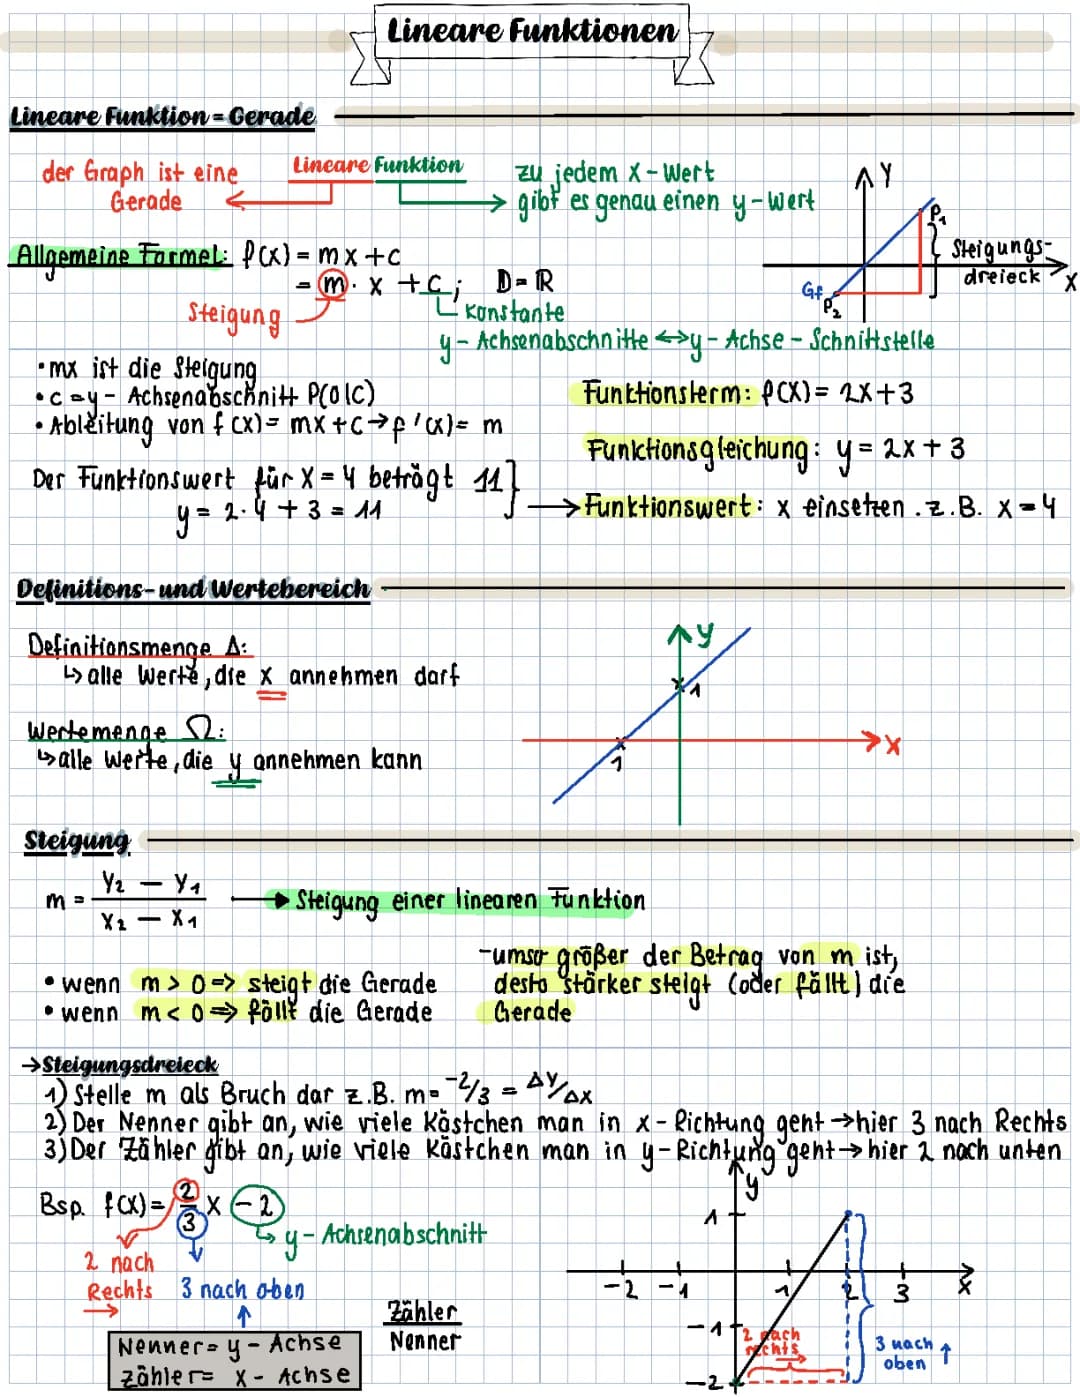 Lineare Funktionen
Lineare Funktion = Gerade
der Graph ist eine
Gerade
Lineare Funktion
zu jedem x-Wert
gibt es genau einen y-Wert
Y
P₁
Steigungs-
dreieck
X
Gf
P₂
Allgemeine Formel: f(x) = mx + c
= m · x + c; D = ℝ
Steigung
Konstante
y-Achsenabschnitte ↔ y-Achse-Schnittstelle
• mx ist die Steigung
• c = y-Achsenabschnitt P(0|C)
• Ableitung von f(x) = mx + c → f'(x) = m
Funktionsterm: f(x) = 2x + 3
Funktionsgleichung: y = 2x + 3
Der Funktionswert für x = 4 beträgt 11}
y = 2 · 4 + 3 = 11
→ Funktionswert: x einsetzen. z.B. x = 4
Definitions- und Wertebereich
Definitionsmenge Δ:
↳ alle Werte, die x annehmen darf
Wertemenge Ω:
↳ alle Werte, die y annehmen kann
y
1
x
1
Steigung
m = (Y₂ − Y₁) / (X₂ − X₁) → Steigung einer linearen Funktion
• wenn m > 0 => steigt die Gerade
• wenn m < 0 => fällt die Gerade
-umso größer der Betrag von m ist,
desto stärker steigt (oder fällt) die
Gerade
→ Steigungsdreieck
1) Stelle m als Bruch dar z.B. m = -2/3 = ΔY/ΔX
2) Der Nenner gibt an, wie viele Kästchen man in x-Richtung geht → hier 3 nach Rechts
3) Der Zähler gibt an, wie viele Kästchen man in y-Richtung geht → hier 2 nach unten
Bsp. f(x) = 2/3 x - 2
↳ y-Achsenabschnitt
2 nach
Rechts
→
3 nach oben
↑
Nenner = y-Achse
Zähler = x-Achse
Zähler
Nenner
y
1
-2 -1 1 2 3 x
-1
2 nach
rechts
3 nach
oben ↑
-2